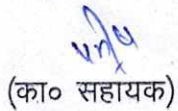 (का० सहायक)